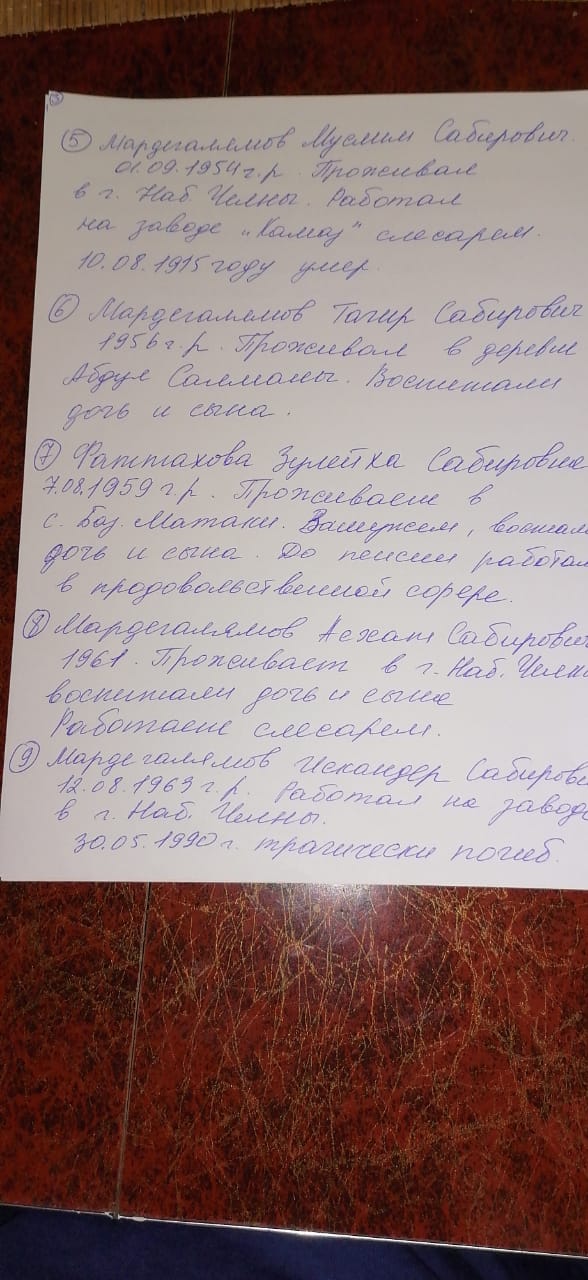 3
5 Мардегалямов Муслим Сабирович.
01.09.1954 г.р. Проживал
в г. Наб. Челны. Работал
на заводе „Камаз" слесарем.
10.08.1915 году умер.
6 Мардегалямов Тагир Сабирович
1956 г.р. Проживал в деревне
Абдул Салманы. Воспитали
дочь и сына.
7 Фаттахова Зулейха Сабировна
7.08.1959 г.р. Проживает в
с. Баз. Матаки. Замужем, воспитали
дочь и сына. До пенсии работала
в продовольственной сфере.
8 Мардегалямов Асхат Сабирович
1961. Проживает в г. Наб. Челны
воспитали дочь и сына
Работает слесарем.
9 Мардегалямов Искандер Сабирович
12.08.1963 г.р. Работал на заводе
в г. Наб. Челны.
30.05.1990 г. трагически погиб.